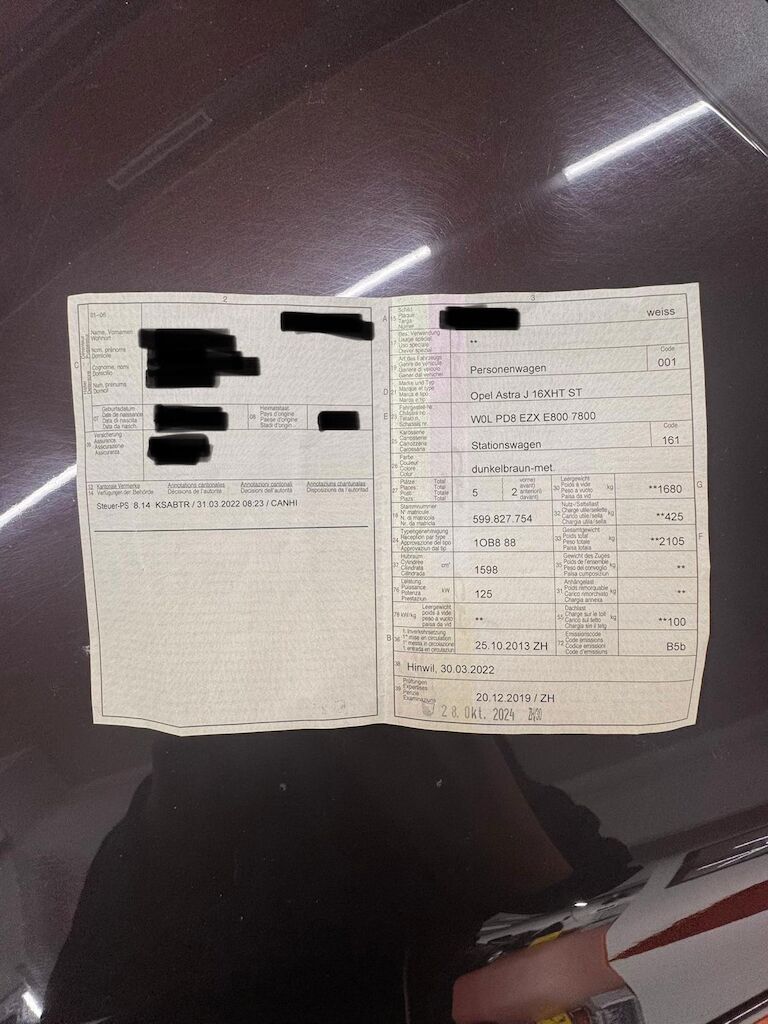 2
01-06
C
Name, Vornamen
Wohnort
Nom, prénoms
Domicile
Cognome, nomi
Domicilio
Num, prenums
Domicil
07
Geburtsdatum
Date de naissance
Data di nascita
Data da nasch.
08
Heimatstaat
Pays d'origine
Paese d'origine
Stadi d'origin
09
Versicherung
Assurance
Assicurazione
Assicuranza
13
14
Kantonale Vermerke
Verfügungen der Behörde
Annotations cantonales
Décisions de l'autorité
Annotazioni cantonali
Decisioni dell'autorità
Annotaziuns chantunalas
Disposiziuns da l'autoritad
Steuer-PS 8.14 KSABTR / 31.03.2022 08:23 / CANHI
3
A 15 Schild
Plaque
Targa
Numer
weiss
17 Bes. Verwendung
Usage spécial
Uso speciale
Diever spezial
**
19 Art des Fahrzeugs
Genre de véhicule
Genere di veicolo
Gener dal vehichel
Personenwagen
Code
001
D 21 Marke und Typ
Marque et type
Marca e tipo
Marca e tip
Opel Astra J 16XHT ST
E 23 Fahrgestell-Nr.
Châssis no
Telaio n.
Schassis nr.
W0L PD8 EZX E800 7800
25 Karosserie
Carrosserie
Carrozzeria
Carossaria
Stationswagen
Code
161
26 Farbe
Couleur
Colore
Colur
dunkelbraun-met.
27 Plätze: Total
Places: Total
Posti: Totale
Plazs: Total
5
2
vorne
avant
anteriori
davant
30 Leergewicht
Poids à vide
Peso a vuoto
Paisa da vid
kg
**1680
G
18 Stammnummer
N° matricule
N. di matricola
Nr. da matricla
599.827.754
32 Nutz-/Sattellast
Charge utile/sellette
Carico utile/sella
Chargia utila/sella
kg
**425
24 Typengenehmigung
Réception par type
Approvazione del tipo
Approvaziun dal tip
1OB8 88
33 Gesamtgewicht
Poids total
Peso totale
Paisa totala
kg
**2105
F
37 Hubraum
Cylindrée
Cilindrata
Cilindrada
cm³
1598
35 Gewicht des Zuges
Poids de l'ensemble
Peso del convoglio
Paisa cumposiziun
kg
**
76 Leistung
Puissance
Potenza
Prestaziun
kW
125
31 Anhängelast
Poids remorquable
Carico rimorchiabile
Chargia annexa
kg
**
78 kW/kg
Leergewicht
poids à vide
peso a vuoto
paisa da vid
**
55 Dachlast
Charge sur le toit
Carico sul tetto
Chargia sin il tetg
kg
**100
B 36 1. Inverkehrsetzung
1re mise en circulation
1a messa in circolazione
1. entrada en circulaziun
25.10.2013 ZH
72 Emissionscode
Code émissions
Codice emissioni
Code d'emissiuns
B5b
38 Hinwil, 30.03.2022
39 Prüfungen
Expertises
Perizie
Examinaziuns
20.12.2019 / ZH
28. Okt. 2024